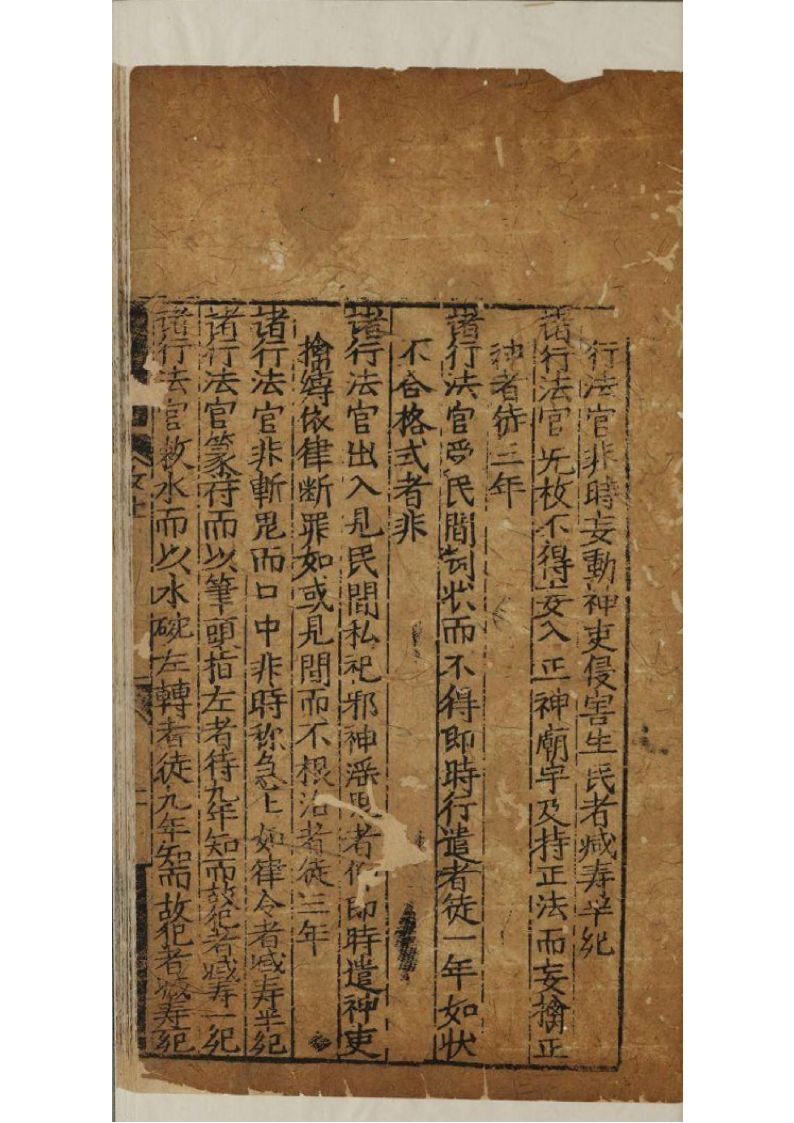 行法官非時妄動神吏侵害生民者减寿半纪
诸行法官无故不得妄入正神廟宇及持正法而妄擒正
神者徒三年
诸行法官受民間词状而不得即時行遣者徒一年如状
不合格式者非
诸行法官出入見民間私祀邪神滛鬼者 即時遣神吏
擒縛依律断罪如或見間而不根治者徒三年
诸行法官非斬鬼而口中非時称急〻如律令者减寿半纪
诸行法官篆符而以筆頭指左者待九年知而故犯者减寿一纪
诸行法官敕水而以水碗左轉者徒九年知而故犯者减寿纪